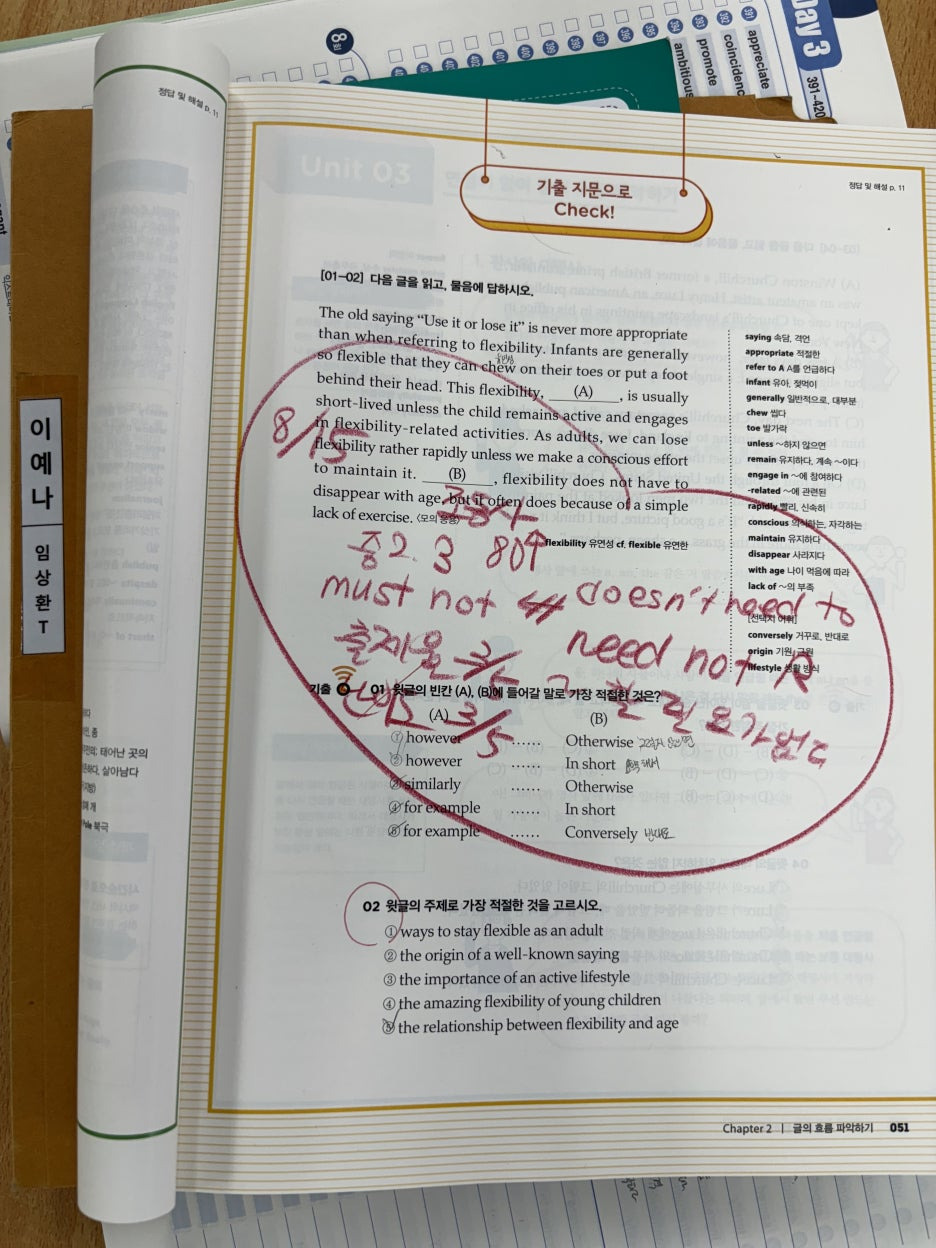 Day 3
391~420
391 appreciate
392 coincidenc
393 promote
394 ambitious
395
396
397
398
399
400
401
402
403
8
정답 및 해설 p. 11
이예나
임상환T
인, 종
태어난 곳의
하다, 살아남다
북극
Unit 03
기출 지문으로
Check!
정답 및 해설 p. 11
[01–02] 다음 글을 읽고, 물음에 답하시오.
The old saying “Use it or lose it” is never more appropriate
than when referring to flexibility. Infants are generally
so flexible that they can chew on their toes or put a foot
behind their head. This flexibility, (A) , is usually
short-lived unless the child remains active and engages
in flexibility-related activities. As adults, we can lose
flexibility rather rapidly unless we make a conscious effort
to maintain it. (B) , flexibility does not have to
disappear with age, but it often does because of a simple
lack of exercise. <모의 응용>
flexibility 유연성 cf. flexible 유연한
saying 속담, 격언
appropriate 적절한
refer to A A를 언급하다
infant 유아, 젖먹이
generally 일반적으로, 대부분
chew 씹다
toe 발가락
unless ~하지 않으면
remain 유지하다, 계속 ~이다
engage in ~에 참여하다
-related ~에 관련된
rapidly 빨리, 신속히
conscious 의식하는, 자각하는
maintain 유지하다
disappear 사라지다
with age 나이 먹음에 따라
lack of ~의 부족
[선택지 어휘]
conversely 거꾸로, 반대로
origin 기원, 근원
lifestyle 생활 방식
8/15
조동사
중2 3 80↑
must not ↔ doesn't need to
need not R
출제율 3/5
난이도 3/5
~할 필요가 없다
기출 01 윗글의 빈칸 (A), (B)에 들어갈 말로 가장 적절한 것은?
(A) (B)
① however …… Otherwise 그렇지 않으면
② however …… In short
③ similarly …… Otherwise
④ for example …… In short
⑤ for example …… Conversely 반대로
02 윗글의 주제로 가장 적절한 것을 고르시오.
① ways to stay flexible as an adult
② the origin of a well-known saying
③ the importance of an active lifestyle
④ the amazing flexibility of young children
⑤ the relationship between flexibility and age
Chapter 2 | 글의 흐름 파악하기 051